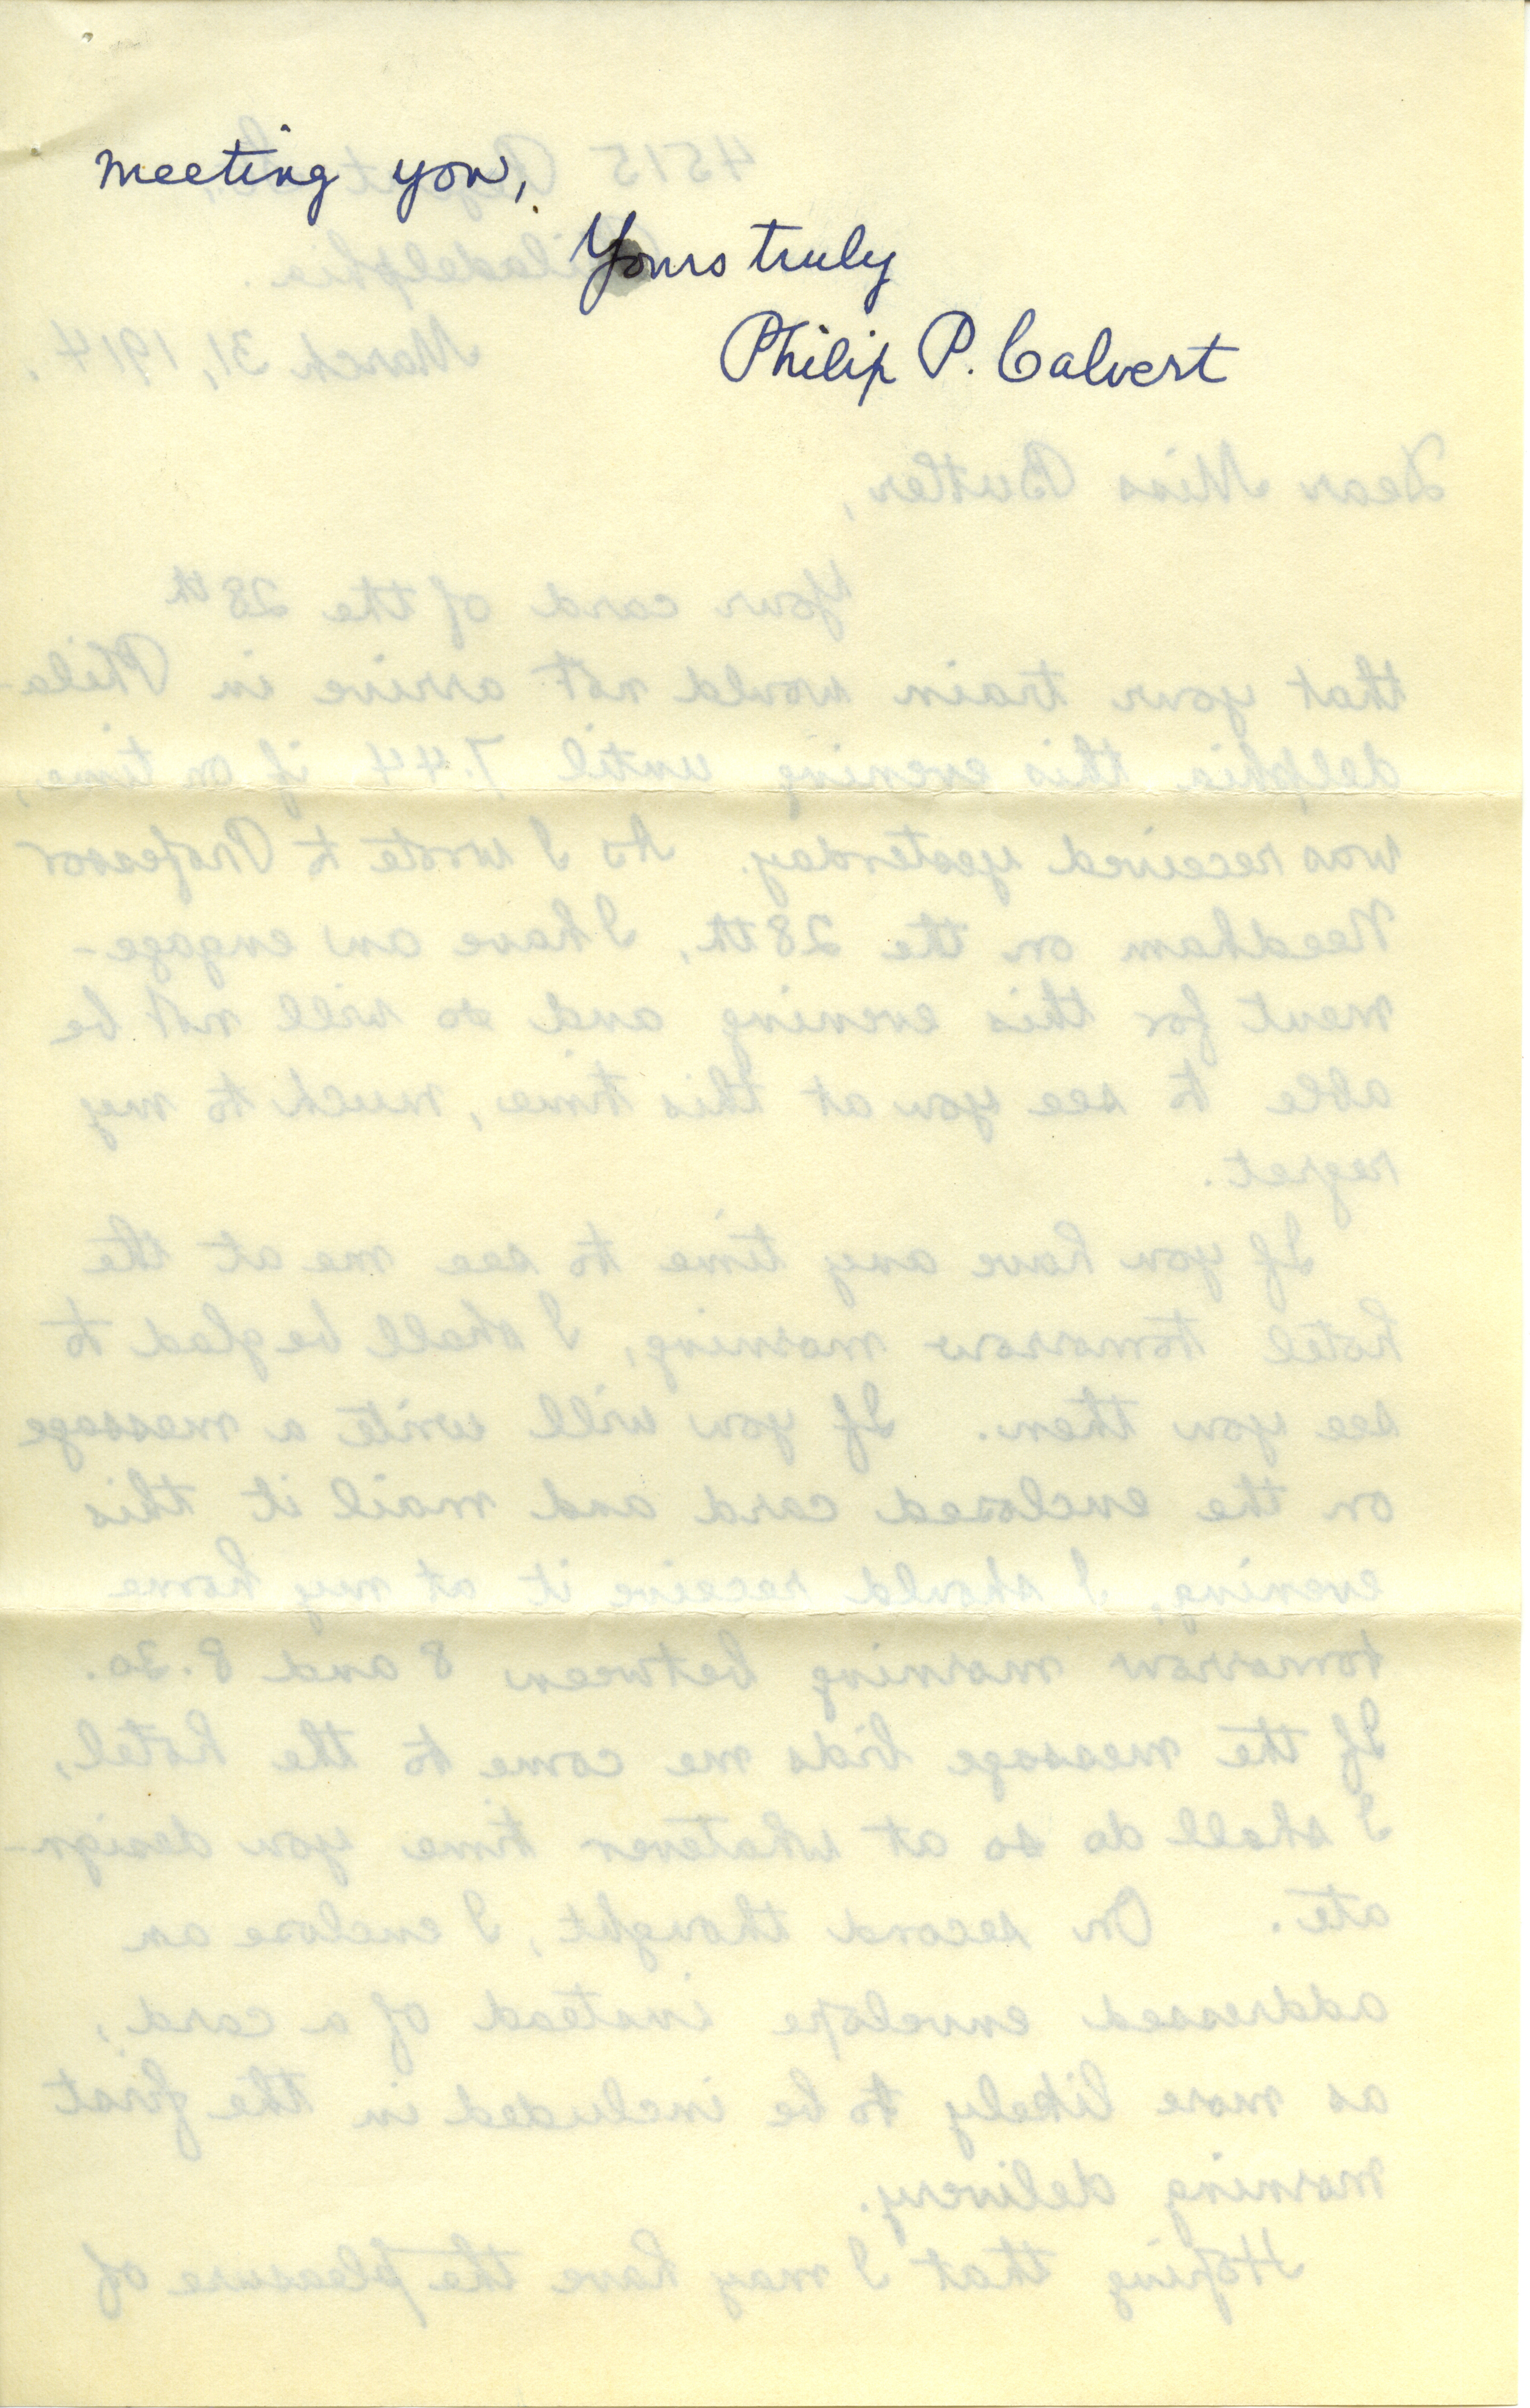 meeting you,
Yours truly
Philip P. Calvert